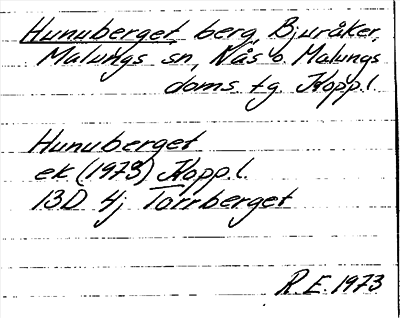 Hunuberget berg, Bjuråker,
Malungs sn, Nås o. Malungs
doms. tg. Kopp. l.
Hunuberget
ek (1973) Kopp. l.
13D 4j Torrberget
R.E. 1973